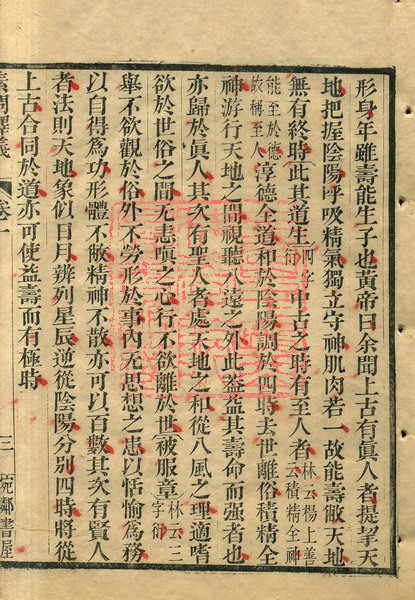 形身年雖壽能生子也黃帝曰余聞上古有眞人者提挈天
地把握陰陽呼吸精氣獨立守神肌肉若一故能壽敝天地
無有終時此其道生四字衍中古之時有至人者林云楊上善云積精全神
能至於德故稱至人淳德全道和於陰陽調於四時去世離俗積精全
神游行天地之間視聽八遠之外此葢益其壽命而强者也
亦歸於眞人其次有聖人者處天地之和從八風之理適嗜
欲於世俗之間无恚嗔之心行不欲離於世被服章林云三字衍
舉不欲觀於俗外不勞形於事內无思想之患以恬愉爲務
以自得爲功形體不敝精神不散亦可以百數其次有賢人
者法則天地象似日月辨列星辰逆從陰陽分別四時將從
上古合同於道亦可使益壽而有極時
素問釋義
卷一
三
宛鄰書屋